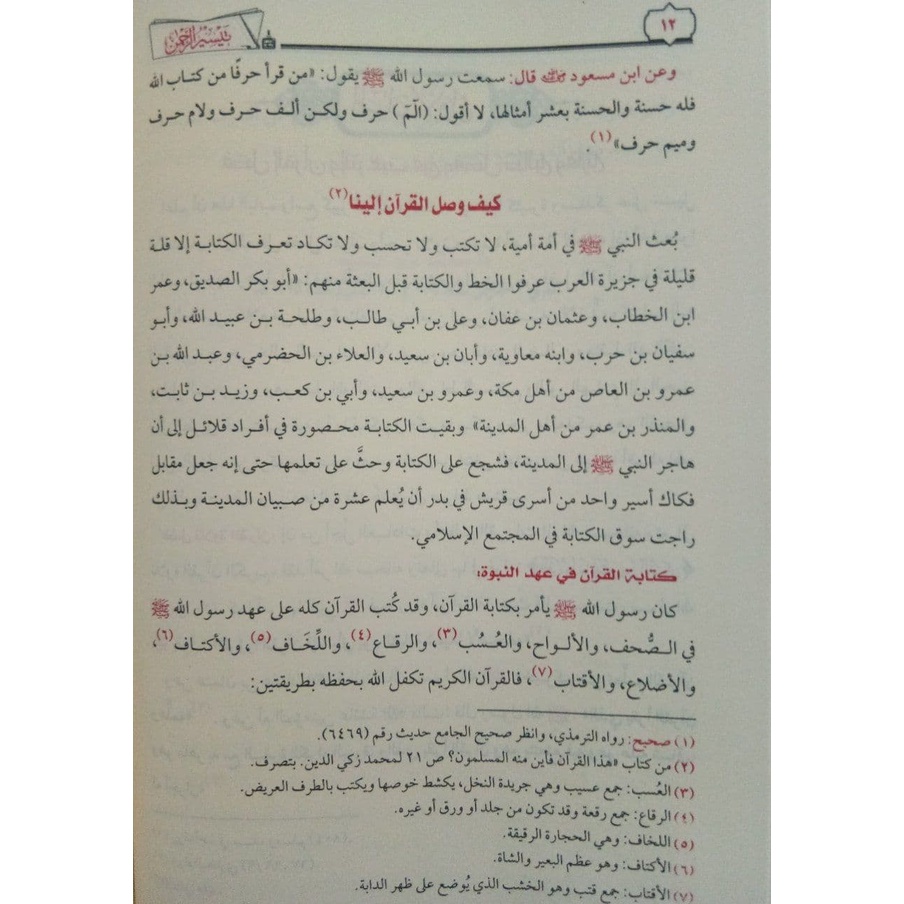 ١٢
تيسير الرحمن
وعن ابن مسعود ﵁ قال: سمعت رسول الله ﷺ يقول: «من قرأ حرفًا من كتاب الله
فله حسنة والحسنة بعشر أمثالها، لا أقول: (الٓمٓ) حرف ولكن ألف حرف ولام حرف
وميم حرف»(١).
كيف وصل القرآن إلينا(٢)
بُعث النبي ﷺ في أمة أمية، لا تكتب ولا تحسب ولا تكاد تعرف الكتابة إلا قلة
قليلة في جزيرة العرب عرفوا الخط والكتابة قبل البعثة منهم: «أبو بكر الصديق، وعمر
ابن الخطاب، وعثمان بن عفان، وعلى بن أبي طالب، وطلحة بن عبيد الله، وأبو
سفيان بن حرب، وابنه معاوية، وأبان بن سعيد، والعلاء بن الحضرمي، وعبد الله بن
عمرو بن العاص من أهل مكة، وعمرو بن سعيد، وأبي بن كعب، وزيد بن ثابت،
والمنذر بن عمر من أهل المدينة» وبقيت الكتابة محصورة في أفراد قلائل إلى أن
هاجر النبي ﷺ إلى المدينة، فشجع على الكتابة وحثَّ على تعلمها حتى إنه جعل مقابل
فكاك أسير واحد من أسرى قريش في بدر أن يُعلم عشرة من صبيان المدينة وبذلك
راجت سوق الكتابة في المجتمع الإسلامي.
كتابة القرآن في عهد النبوة:
كان رسول الله ﷺ يأمر بكتابة القرآن، وقد كُتب القرآن كله على عهد رسول الله ﷺ
في الصُّحف، والألواح، والعُسُب(٣)، والرقاع(٤)، واللِّخَاف(٥)، والأكتاف(٦)،
والأضلاع، والأقتاب(٧)، فالقرآن الكريم تكفل الله بحفظه بطريقتين:
(١) صحيح: رواه الترمذي، وانظر صحيح الجامع حديث رقم (٦٤٦٩).
(٢) من كتاب «هذا القرآن فأين منه المسلمون؟ ص ٢١ لمحمد زكي الدين. بتصرف.
(٣) العُسب: جمع عسيب وهي جريدة النخل، يكشط خوصها ويكتب بالطرف العريض.
(٤) الرقاع: جمع رقعة وقد تكون من جلد أو ورق أو غيره.
(٥) اللخاف: وهي الحجارة الرقيقة.
(٦) الأكتاف: وهو عظم البعير والشاة.
(٧) الأقتاب: جمع قتب وهو الخشب الذي يُوضع على ظهر الدابة.